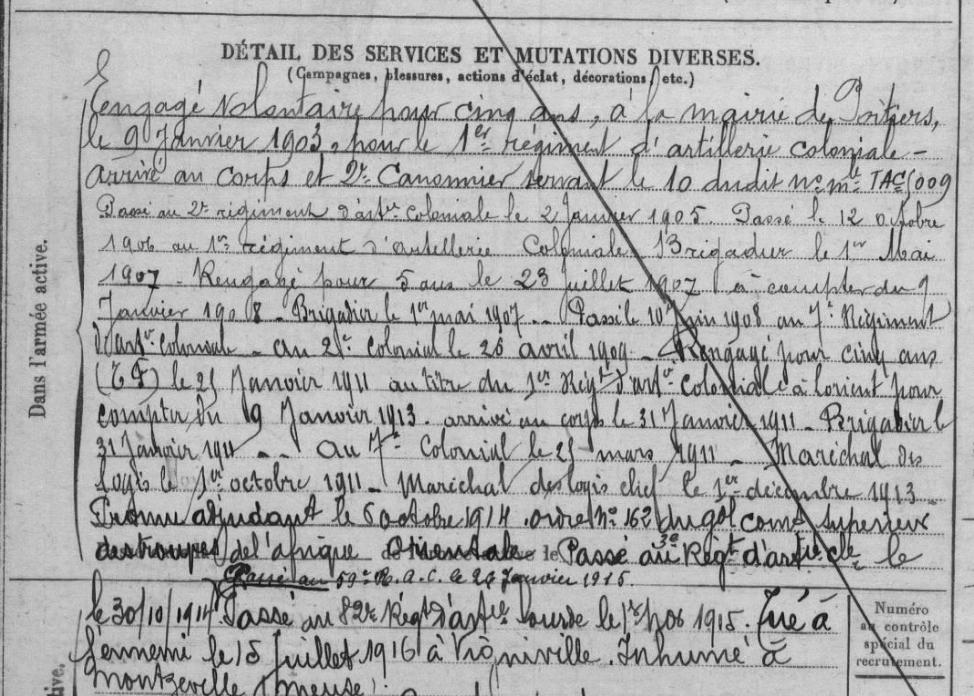 DÉTAIL DES SERVICES ET MUTATIONS DIVERSES.
(Campagnes, blessures, actions d'éclat, décorations, etc.)
Engagé volontaire pour cinq ans, à la mairie de Poitiers,
le 9 Janvier 1903, pour le 1er régiment d'artillerie coloniale -
arrivé au corps et 2e Canonnier servant le 10 dudit no mle TAC/009
Passé au 2e régiment d'artie Coloniale le 2 Janvier 1905. Passé le 12 octobre
1906 au 1er régiment d'artillerie Coloniale Brigadier le 1er Mai
1907 - Rengagé pour 5 ans le 23 juillet 1907 à compter du 9
Janvier 1908 - Brigadier le 1er mai 1907 - Passé le 10 Juin 1908 au 7e Régiment
d'artie Coloniale - au 2e Colonial le 26 avril 1909 - Rengagé pour cinq ans
le 25 Janvier 1911 au titre du 1er Régt d'artie Coloniale à Lorient pour
compter du 9 Janvier 1913. arrivé au corps le 31 Janvier 1911 - Brigadier le
31 Janvier 1911 - - au 7e Colonial le 25 mars 1911 - Maréchal des
logis le 1er octobre 1911 - Maréchal des logis chef le 1er décembre 1913 -
Promu adjudant le 5 octobre 1914. ordre No 162 du gal comt Supérieur
des troupes de l'afrique Orientale le Passé au 3e Régt d'artie cle le
Passé au 59e R.A.C. le Janvier 1915.
le 30/10/1914. Passé au 82e Régt d'artie lourde le 1er Nov 1915. Tué à
l'ennemi le 15 Juillet 1916 à Vigniville. Inhumé à
Montzeville (Meuse).
Dans l'armée active.
Numéro
au contrôle
spécial du
recrutement.